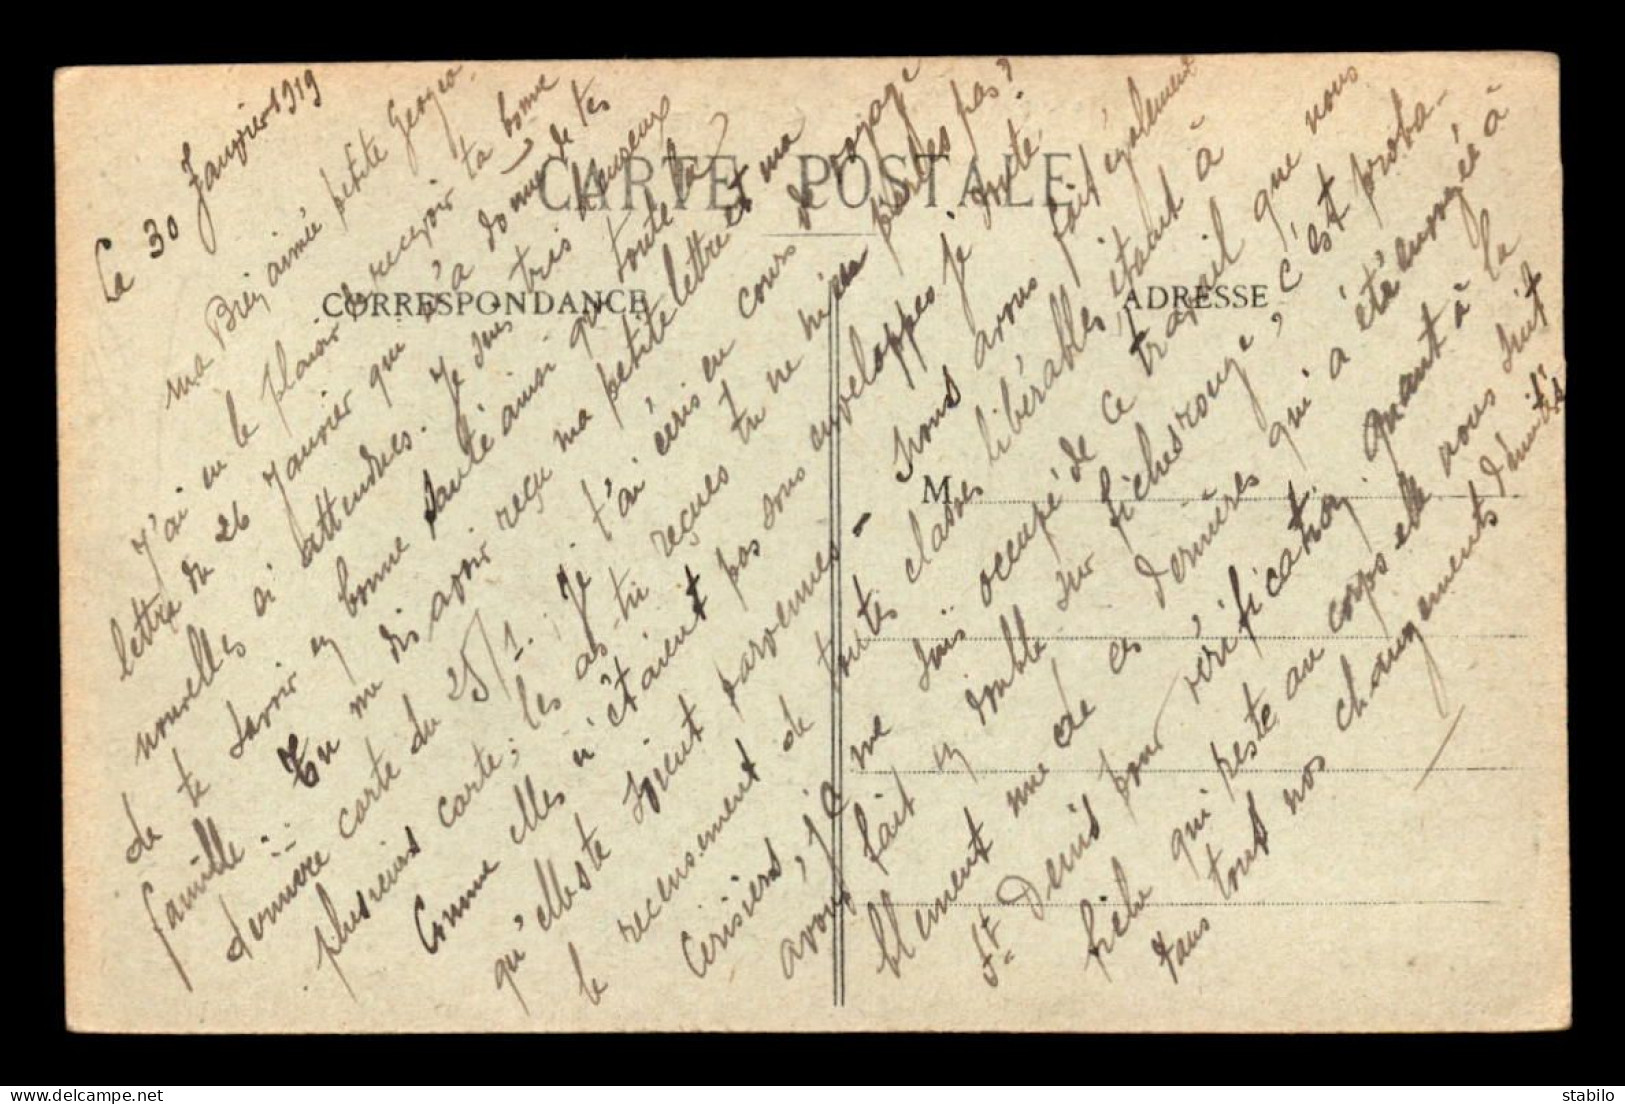 CARTE POSTALE
CORRESPONDANCE
ADRESSE
M
Le 30 Janvier 1919
Ma Bien aimée petite Georges
J'ai eu le plaisir de recevoir ta bonne
lettre du 26 Janvier qui m'a donné de tes
nouvelles si attendues. Je suis très heureux
de te savoir en bonne santé ainsi que toute la
famille. Tu me dis avoir reçu ma petite lettre et ma
dernière carte du 25/1. Je t'ai écris en cours de voyage
plusieurs cartes; les as tu reçues tu ne m'en parles pas?
Comme elles n'étaient pas sous enveloppes je doute
qu'elles te soient parvenues - Nous avons fait également
le recensement de toutes classes libérables étant à
Cerisiers, je me suis occupé de ce travail que nous
avons fait en double sur fiches rouge, c'est proba-
blement une de ces dernières qui a été envoyée à
St Denis pour vérification. Quant à la
fiche qui reste au corps elle nous suit
dans tous nos changements d'unités
stabilo